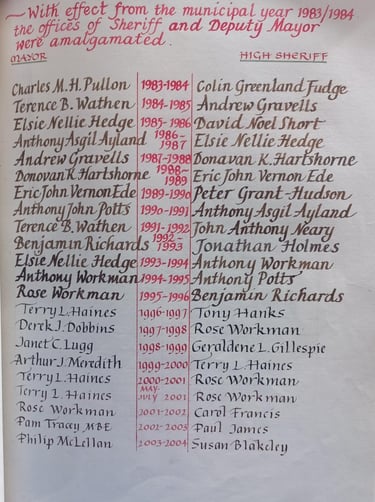 ~With effect from the municipal year 1983/1984
the offices of Sheriff and Deputy Mayor
were amalgamated.
MAYOR HIGH SHERIFF
Charles M.H. Pullon 1983-1984 Colin Greenland Fudge
Terence B. Wathen 1984-1985 Andrew Gravells
Elsie Nellie Hedge 1985-1986 David Noel Short
Anthony Asgil Ayland 1986-1987 Elsie Nellie Hedge
Andrew Gravells 1987-1988 Donavan K. Hartshorne
Donovan K. Hartshorne 1988-1989 Eric John Vernon Ede
Eric John Vernon Ede 1989-1990 Peter Grant-Hudson
Anthony John Potts 1990-1991 Anthony Asgil Ayland
Terence B. Wathen 1991-1992 John Anthony Neary
Benjamin Richards 1992-1993 Jonathan Holmes
Elsie Nellie Hedge 1993-1994 Anthony Workman
Anthony Workman 1994-1995 Anthony Potts
Rose Workman 1995-1996 Benjamin Richards
Terry L. Haines 1996-1997 Tony Hanks
Derek J. Dobbins 1997-1998 Rose Workman
Janet C. Lugg 1998-1999 Geraldene L. Gillespie
Arthur J. Meredith 1999-2000 Terry L. Haines
Terry L. Haines 2000-2001 Rose Workman
Terry L. Haines MAY-JULY 2001 Rose Workman
Rose Workman 2001-2002 Carol Francis
Pam Tracey MBE 2002-2003 Paul James
Philip McLellan 2003-2004 Susan Blakeley